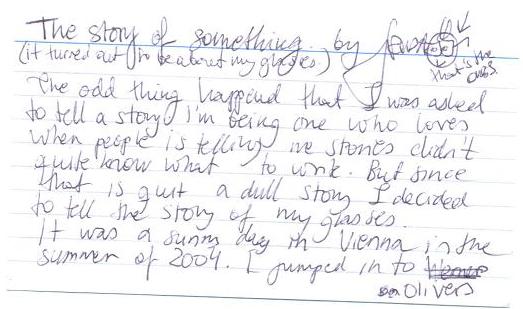 The story of something. by
(it turned out to be about my glasses.)
that's the
The odd thing happend that I was asked
to tell a story I'm being one who loves
when people is telling me stories didn't
quite know what to write. But since
that is quit a dull story I decided
to tell the story of my glasses.
It was a sunny day in Vienna in the
summer of 2004. I jumped in to
Olivers